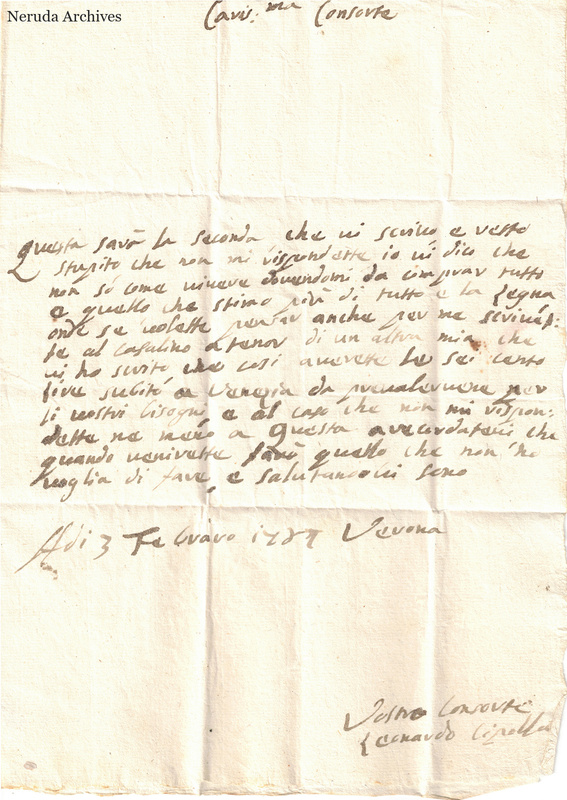 Neruda Archives
Caris.ma Consorte
Questa sarà la seconda che vi scrivo e resto
stupito che non mi rispondette io vi dico che
non só come vivere dovendomi da comprar tutto
e quello che stimo più di tutto e la Legna
onde se volette pensar anche per me scrivere:
te al Casalino a tenor di un altra mia che
vi ho scrito che così averete le sei cento
lire subito a Venezia da prevalervene per
li vostri bisogni e al caso che non mi rispon:
dette ne meno a Questa arecordatevi che
quando venirette farò quello che non hò
voglia di fare, e salutandovi sono
Adi 3 Febraro 1787 Verona
Vostro Consorte
Leonardo